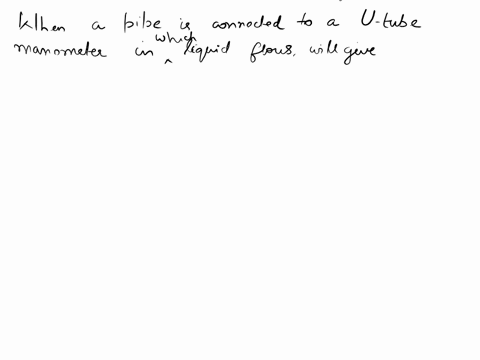 When a pipe is connected to a U-tube
manometer in which liquid flows, will give